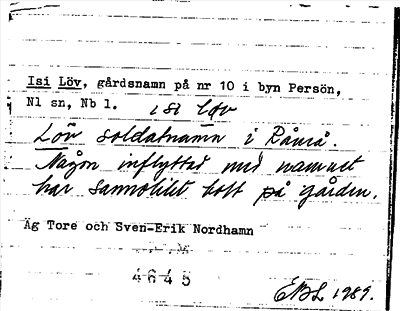 Isi Löv, gårdsnamn på nr 10 i byn Persön,
Nl sn, Nb l.
isi löv
Löv soldatnamn i Råneå.
Någon inflyttad med namnet
har sannolikt bott på gården.
Äg Tore och Sven-Erik Nordhamn
4645
EBL 1989.